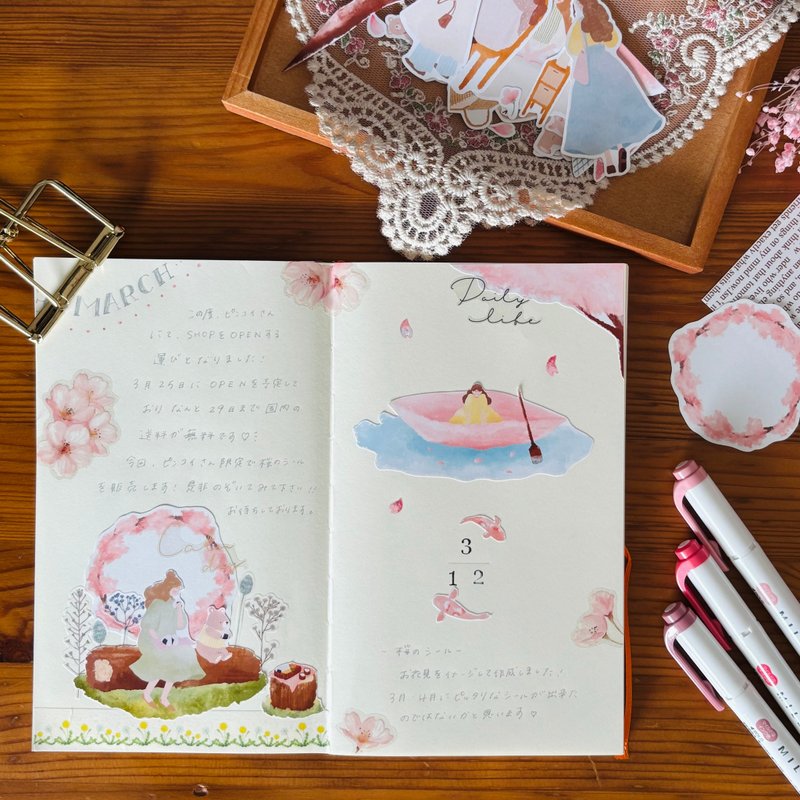 MARCH
この度、ピンコイさん
にて、SHOPをOPENする
運びとなりました!
3月25日にOPENを予定して
おり なんと 29日まで国内の
送料が無料です♡!
今回、ピンコイさん限定で桜のシール
を販売します! 是非のぞいてみて下さい!!
お待ちしております。
Daily
life
3
12
- 桜のシール -
お花見をイメージして作成しました!
3月、4月にピッタリなシールが出来た
のではないかと思います♡